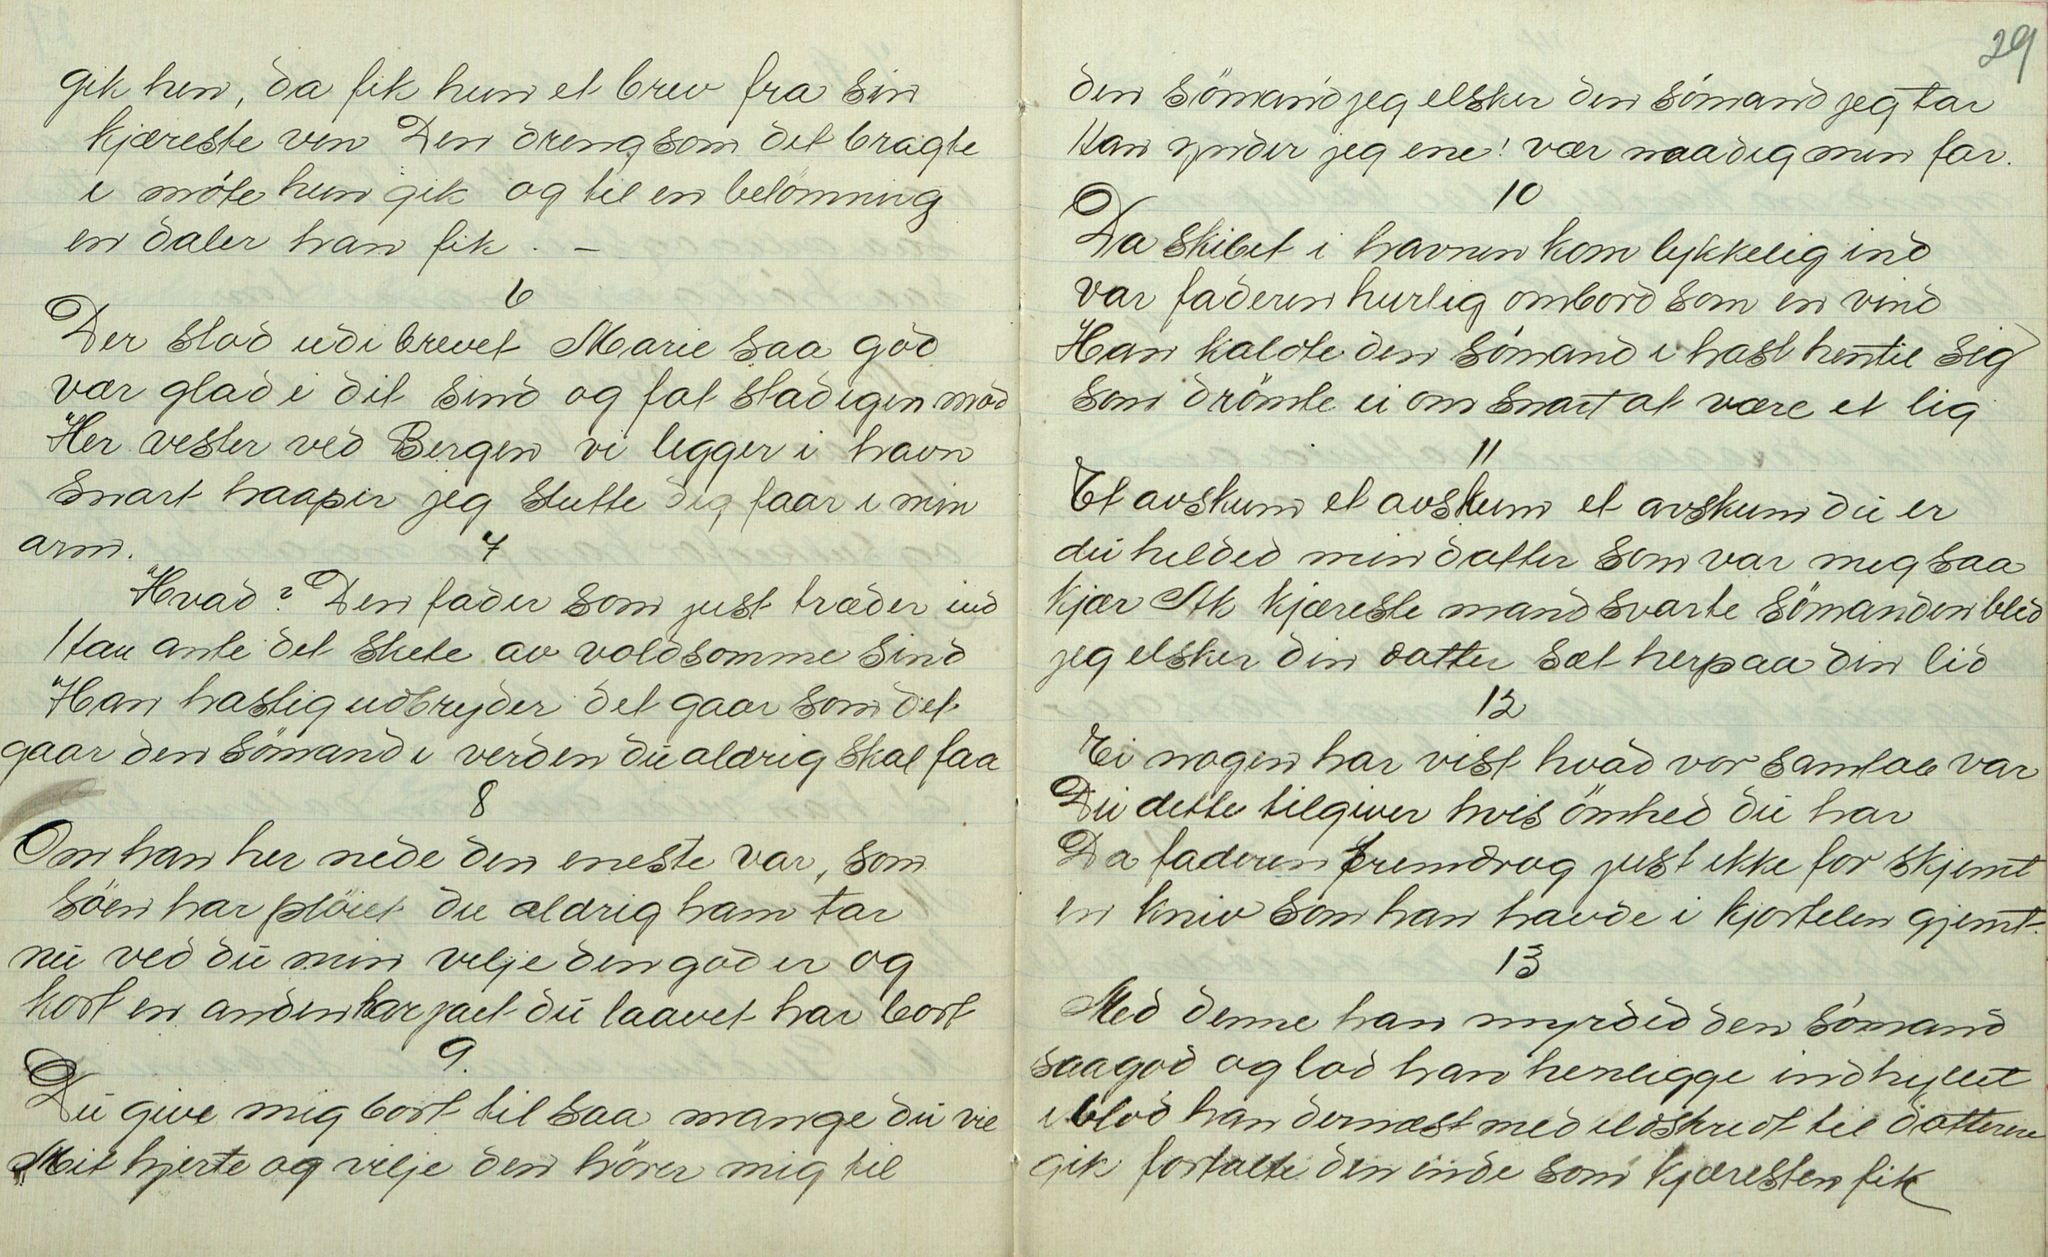 gik hen, da fik hun et brev fra sin
kjæreste ven Den dreng som det bragte
i möte hun gik og til en belönning
en daler han fik. —
6
Der stod udi brevet Marie saa god
vær glad i dit sind og fat stadigen mod
Her vester ved Bergen vi legger i havn
snart haaper jeg slutte dig faar i min
arm.
7
Hvad? Den fader som just træder ind
Han ante det skete av voldsomme sind
Han hastig udbryder det gaar som det
gaar den sömand i verden du aldrig skal faa
8
Om han her nede den eneste var, som
söen har plöiet du aldrig ham tar
nu ved du min vilje den god er og
kort en anden har jaet du laavet har bort
9.
Du give mig bort til saa mange du vil
Mit hjerte og vilje den hörer mig til
29
den sömand jeg elsker den sömand jeg tar
Han ynder jeg ene! vær naadig min far.
10
Da skibet i havnen kom lykkelig ind
var faderen hurlig ombord som en vind
Han kaldte den sömand i hast hen til sig
som drömte ei om snart at være et lig
11
Et avskum et avskum et avskum du er
du helded min datter som var meg saa
kjær Ak kjæreste mand svarte sömanden blid
jeg elsker din datter sæt herpaa din lid
12
Ei nogen har vist hvad vor samtale var
Du dette tilgiver hvis ömhed du har
Da faderen fremdrog just ikke for skjemt
en kniv som han havde i kjortelen gjemt.
13
Med denne han myrded den sömand
saa god og lod han henligge indhyllet
i blod han dernæst med ildskridt til datteren
gik fortalte den ende som kjæresten fik